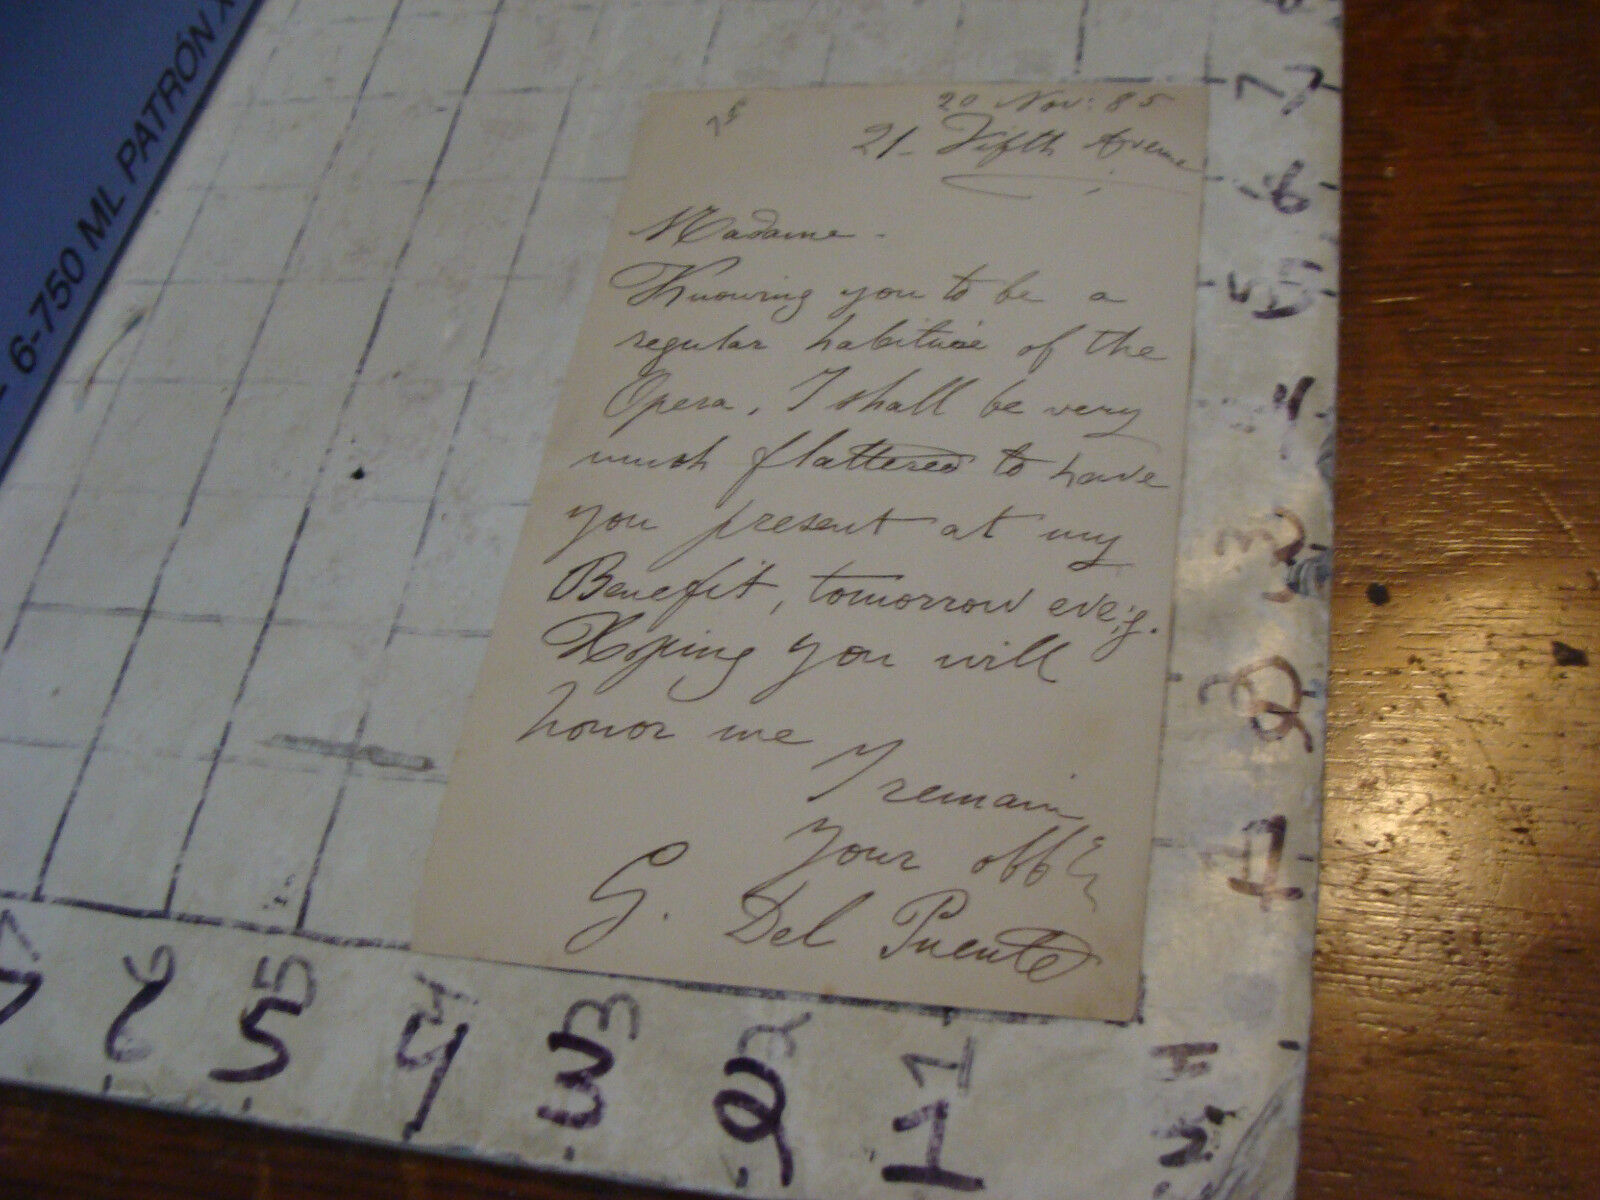 6-750 ML PATRÓN X
20 Nov: 85
21. Fifth Avenue
Madame -
Knowing you to be a
regular habituée of the
Opera, I shall be very
much flattered to have
you present at my
Benefit, tomorrow eve'g.
Hoping you will
honor me
I remain
Your
G. Del Puente
7
6
5
4
3
2
1
7 6 5 4 3 2 1